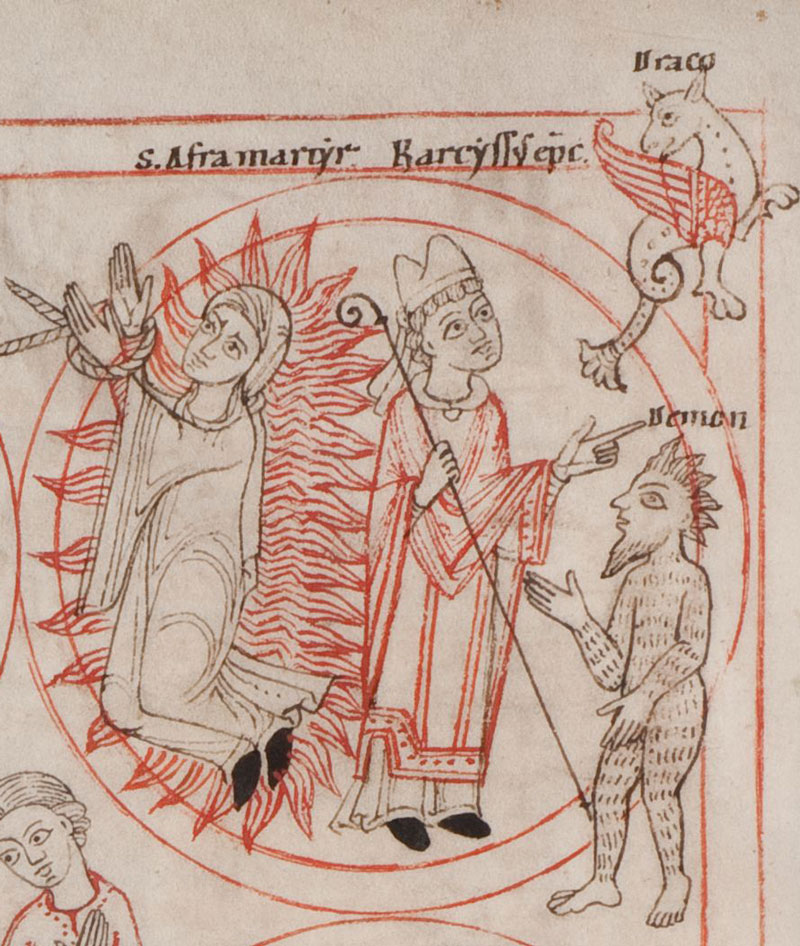 Draco
S. Afra martyr. Narcyssꝰ ep̄c.
Demon